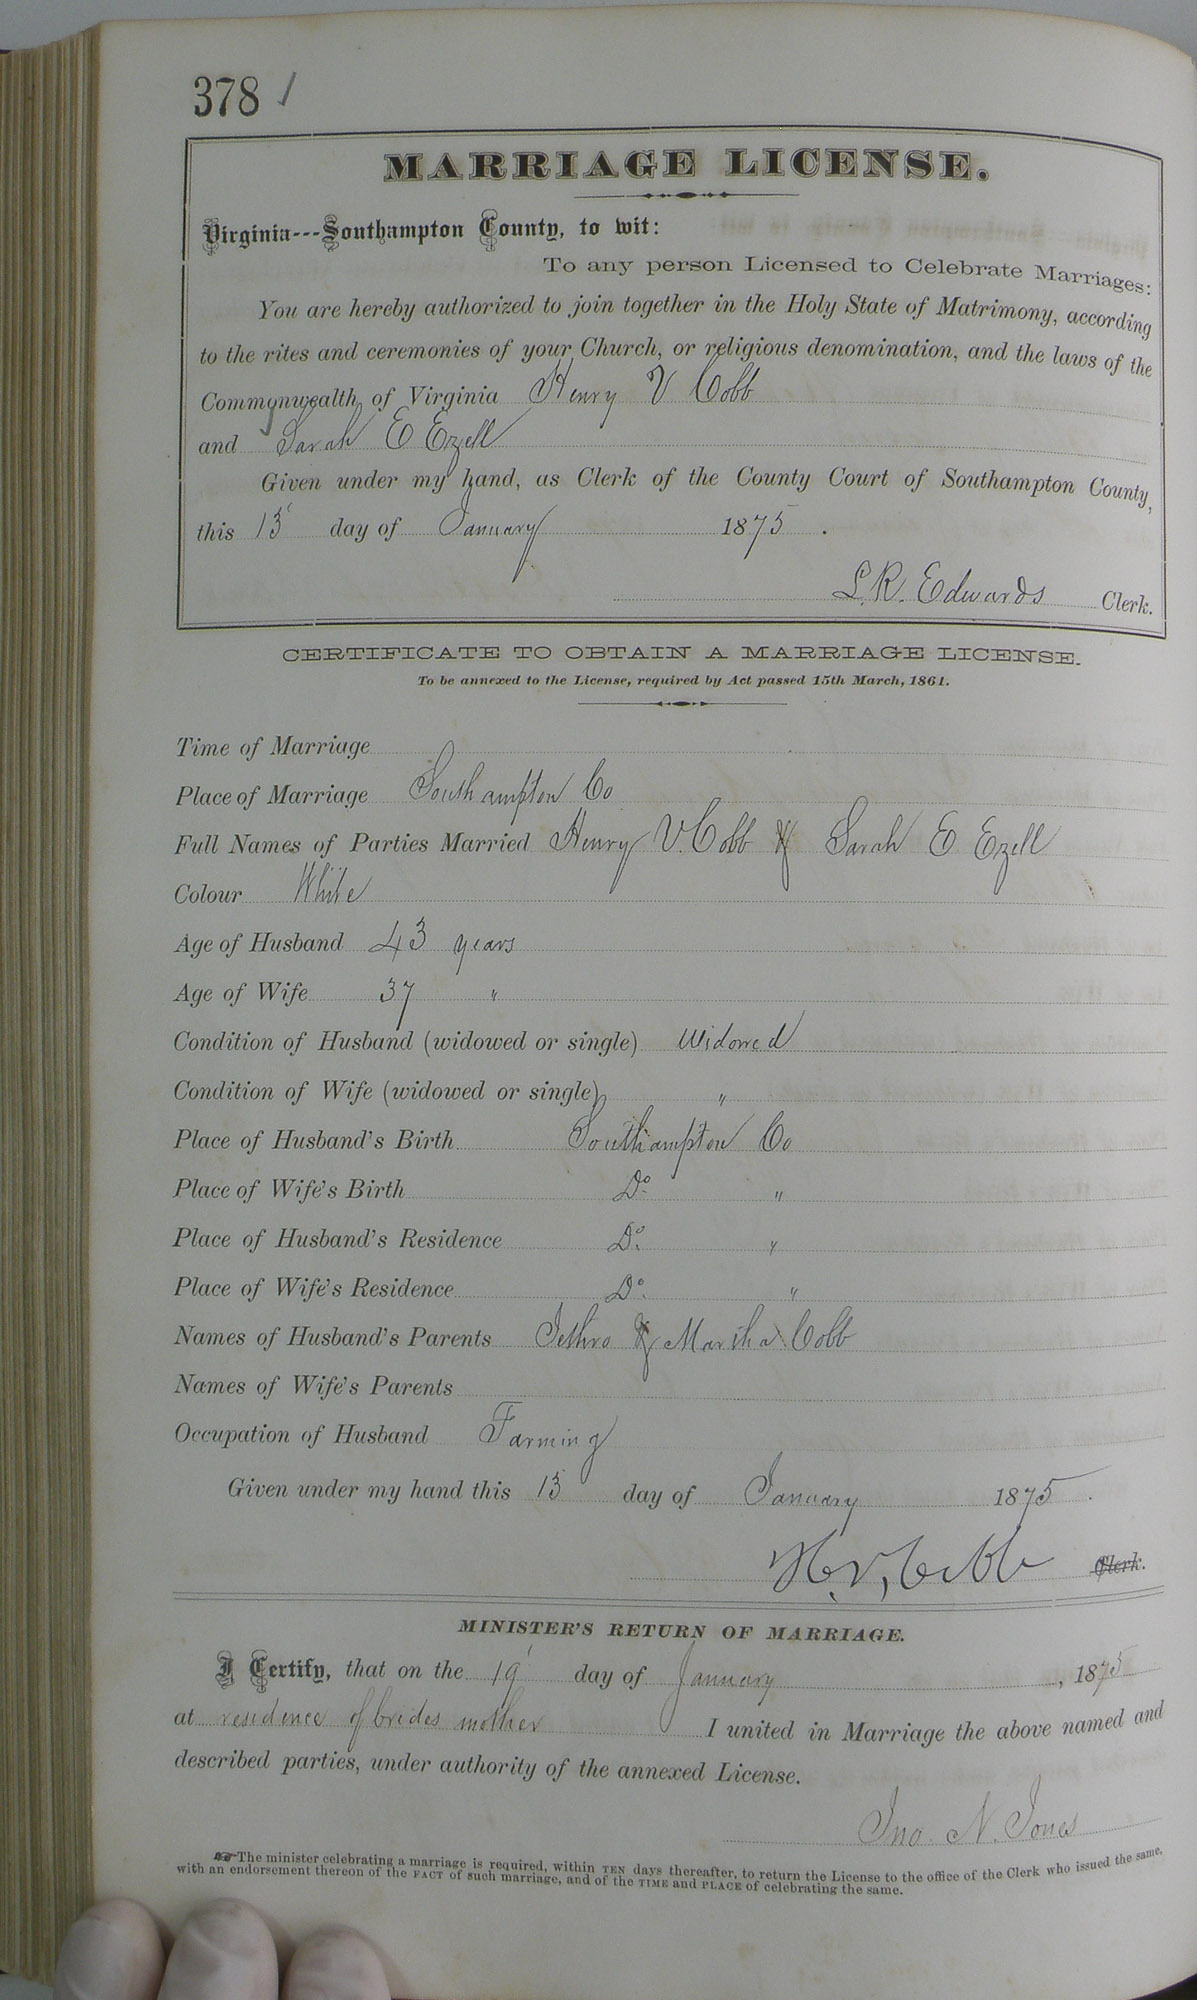 378 /
MARRIAGE LICENSE.
Virginia---Southampton County, to wit:
To any person Licensed to Celebrate Marriages:
You are hereby authorized to join together in the Holy State of Matrimony, according
to the rites and ceremonies of your Church, or religious denomination, and the laws of the
Commonwealth of Virginia Henry V Cobb
and Sarah E Ezell
Given under my hand, as Clerk of the County Court of Southampton County,
this 13 day of January 1875.
L. R. Edwards Clerk.
CERTIFICATE TO OBTAIN A MARRIAGE LICENSE.
To be annexed to the License, required by Act passed 15th March, 1861.
Time of Marriage
Place of Marriage Southampton Co
Full Names of Parties Married Henry V. Cobb & Sarah E Ezell
Colour White
Age of Husband 43 years
Age of Wife 37 "
Condition of Husband (widowed or single) Widowed
Condition of Wife (widowed or single) "
Place of Husband's Birth Southampton Co
Place of Wife's Birth Do. "
Place of Husband's Residence Do. "
Place of Wife's Residence Do. "
Names of Husband's Parents Jethro & Martha Cobb
Names of Wife's Parents
Occupation of Husband Farming
Given under my hand this 13 day of January 1875.
H. V. Cobb Clerk.
MINISTER'S RETURN OF MARRIAGE.
I Certify, that on the 19 day of January, 1875
at residence of brides mother I united in Marriage the above named and
described parties, under authority of the annexed License.
Jno. N. Jones
☞The minister celebrating a marriage is required, within TEN days thereafter, to return the License to the office of the Clerk who issued the same,
with an endorsement thereon of the FACT of such marriage, and of the TIME and PLACE of celebrating the same.